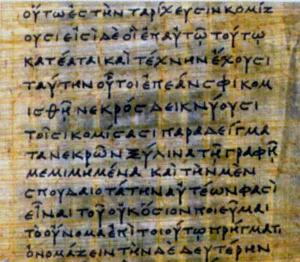 οὕτω ἐς τὴν ταρίχευσιν κομίζ
ουσι εἰσὶ δὲ οἳ ἐπ αὐτῷ τούτῳ
κατέαται καὶ τέχνην ἔχουσι
ταύτην οὗτοι ἐπεάν σφι κομ
ισθῇ νεκρός δεικνύουσι
τοῖσι κομίσασι παραδείγμα
τα νεκρῶν ξύλινα τῇ γραφῇ
μεμιμημένα καὶ τὴν μὲν
σπουδαιοτάτην αὐτέων φασὶ
εἶναι τοῦ οὐκ ὅσιον ποιεῦμαι
τὸ οὔνομα ἐπὶ τοιούτῳ πρήγματι
ὀνομάζειν τὴν δὲ δευτέρην